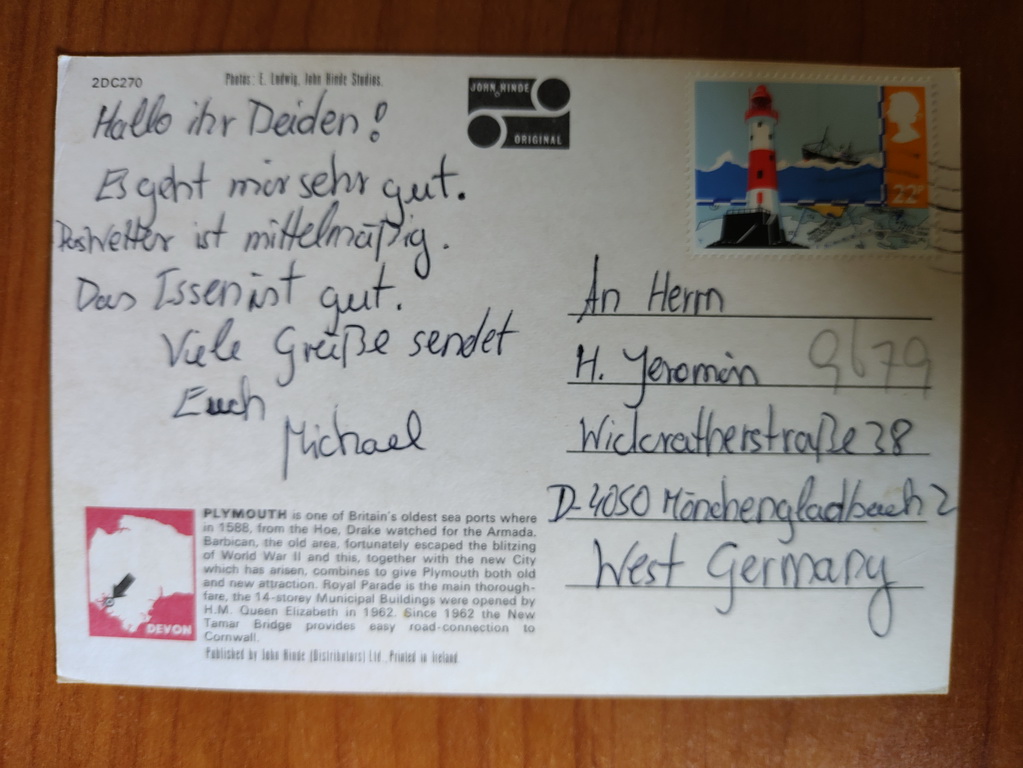 2DC270
Photos: E. Ludwig, John Hinde Studios.
JOHN HINDE
ORIGINAL
22P
Hallo ihr Beiden!
Es geht mir sehr gut.
Das Wetter ist mittelmäßig.
Das Essen ist gut.
Viele Grüße sendet
Euch
Michael
An Herrn
H. Jeromin 9679
Wickratherstraße 38
D-4050 Mönchengladbach 2
West Germany
DEVON
PLYMOUTH is one of Britain's oldest sea ports where
in 1588, from the Hoe, Drake watched for the Armada.
Barbican, the old area, fortunately escaped the blitzing
of World War II and this, together with the new City
which has arisen, combines to give Plymouth both old
and new attraction. Royal Parade is the main thorough-
fare, the 14-storey Municipal Buildings were opened by
H.M. Queen Elizabeth in 1962. Since 1962 the New
Tamar Bridge provides easy road-connection to
Cornwall.
Published by John Hinde (Distributors) Ltd. Printed in Ireland.